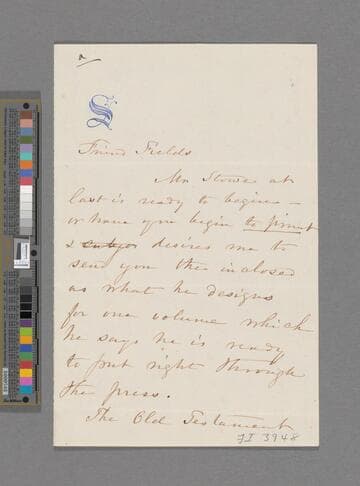 S
Friend Fields
Mr Stowe at
last is ready to begin —
or have you begin to print
& desires me to
send you the inclosed
as what he designs
for one volume which
he says he is ready
to put right through
the press.
The Old Testament
FI 3948